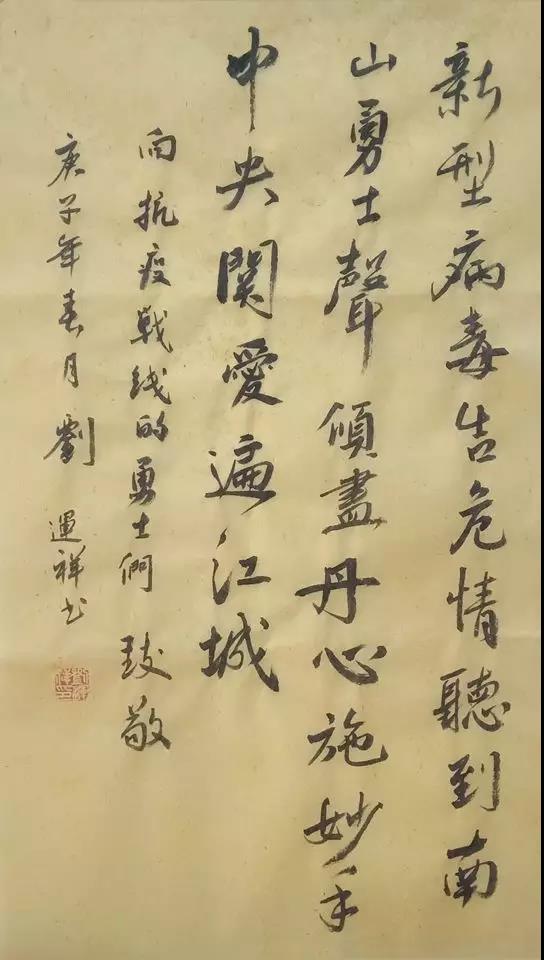 新型病毒告危情聽到南
山勇士聲傾盡丹心施妙手
中央関愛遍江城
向抗疫戰线的勇士們致敬
庚子年春月劉運祥书